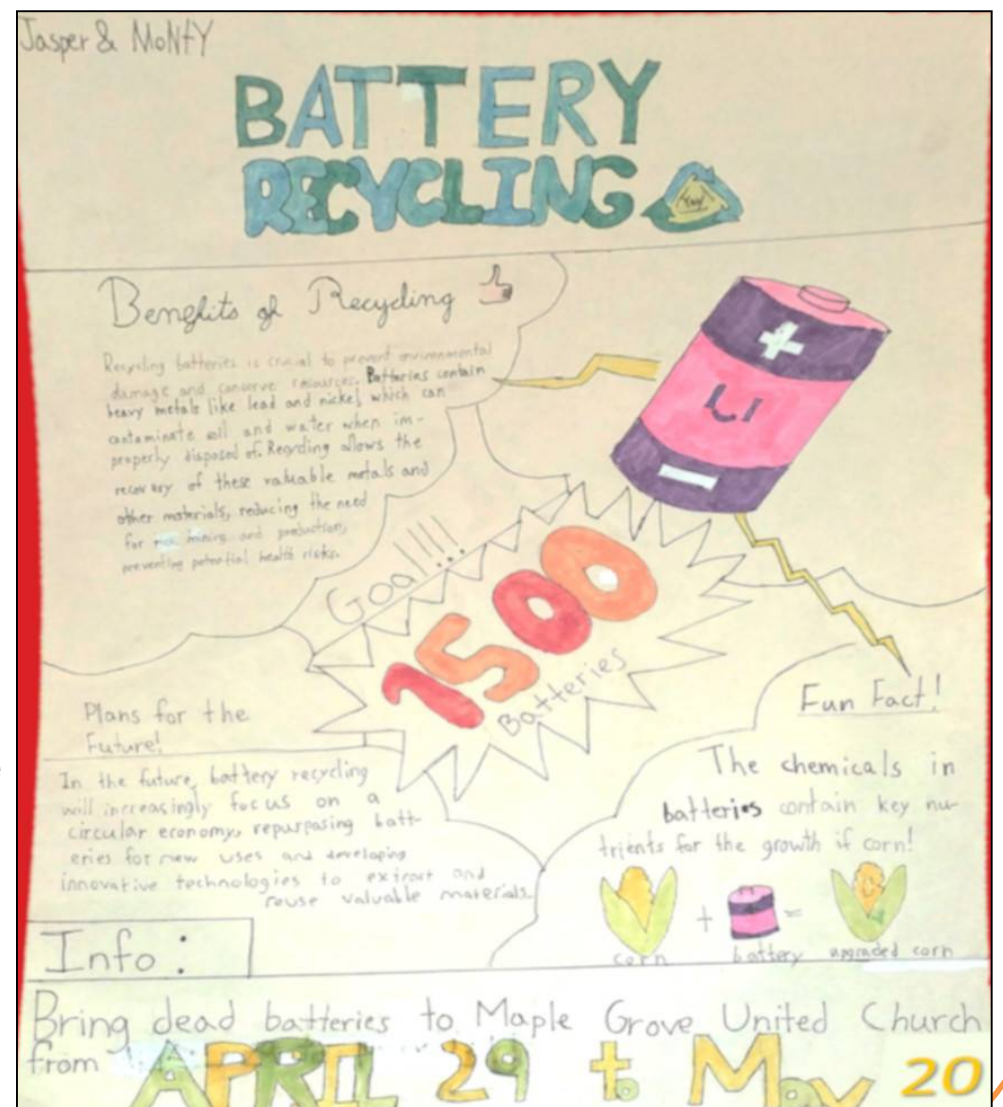 Jasper & MoNtY
BATTERY
RECYCLING
Yay!
Benefits of Recycling
Recycling batteries is crucial to prevent environmental
damage and conserve resources. Batteries contain
heavy metals like lead and nickel, which can
contaminate soil and water when im-
properly disposed of. Recycling allows the
recovery of these valuable metals and
other materials, reducing the need
for mining and production,
preventing potential health risks.
+
-
Goal!!!!
1500
Batteries
Plans for the
Future!
In the future, battery recycling
will increasingly focus on a
circular economy, repurposing batt-
eries for new uses and developing
innovative technologies to extract and
reuse valuable materials.
Fun Fact!
The chemicals in
batteries contain key nu-
trients for the growth if corn!
+ =
corn battery upgraded corn
Info:
Bring dead batteries to Maple Grove United Church
from APRIL 29 to May 20